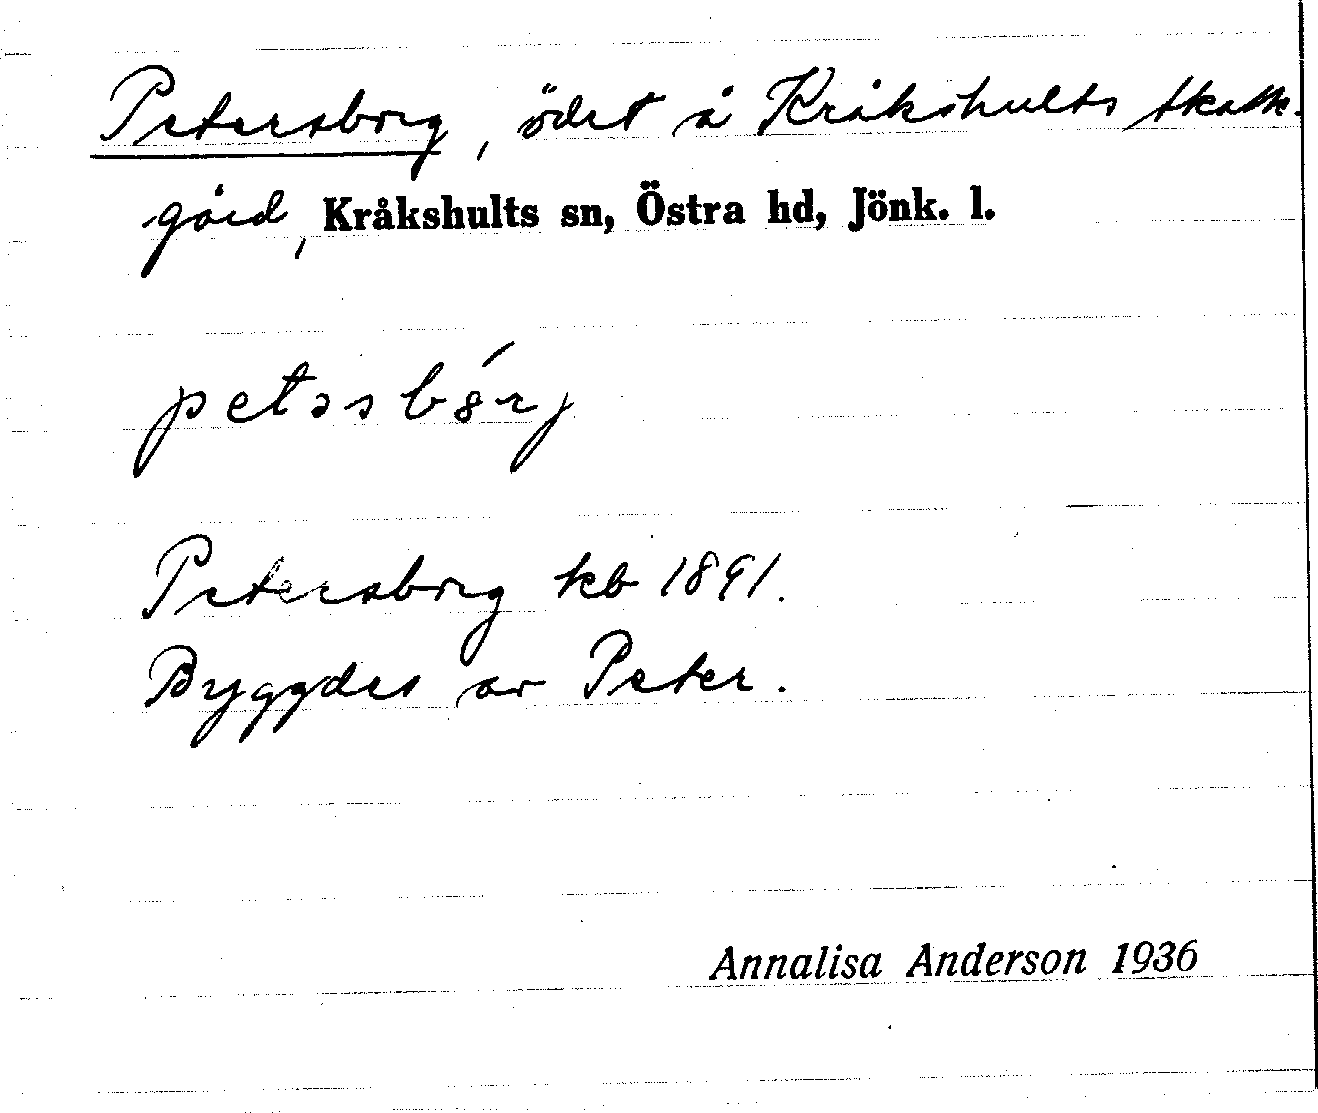 Petersborg, ödet å Kråkshults skatte-
gård, Kråkshults sn, Östra hd, Jönk. l.
petəsbȣ́rj
Petersborg kb 1891.
Byggdes av Peter.
Annalisa Anderson 1936